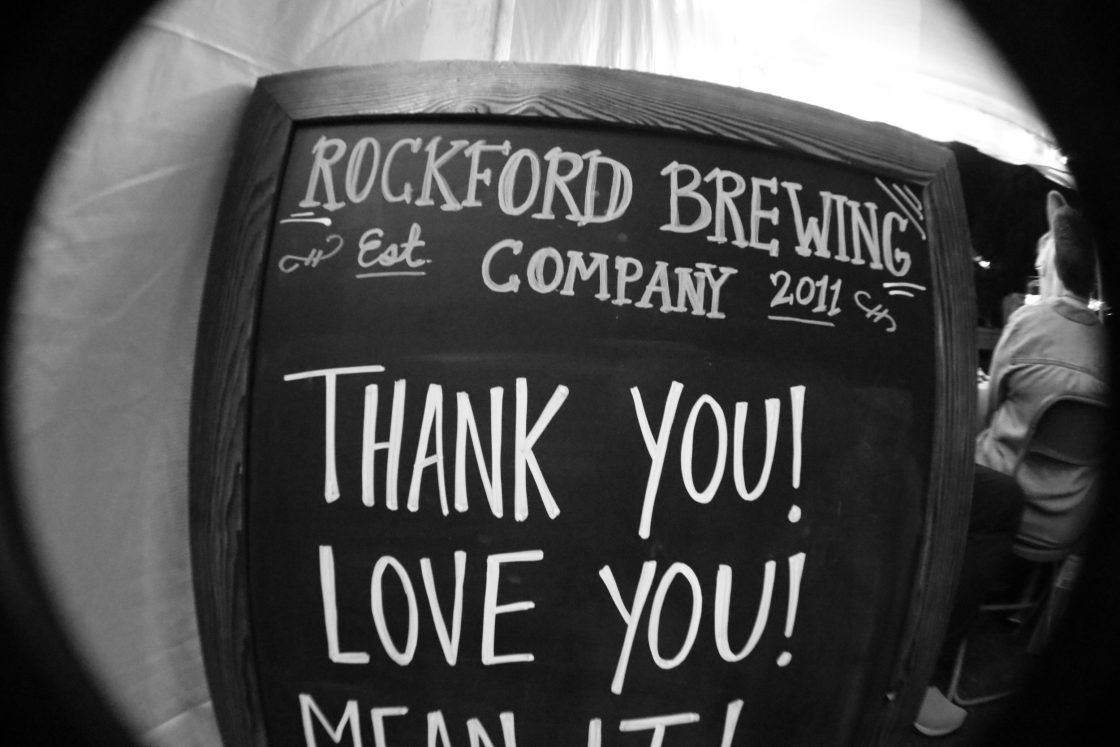 ROCKFORD BREWING
Est. COMPANY 2011
THANK YOU!
LOVE YOU!
MEAN IT!